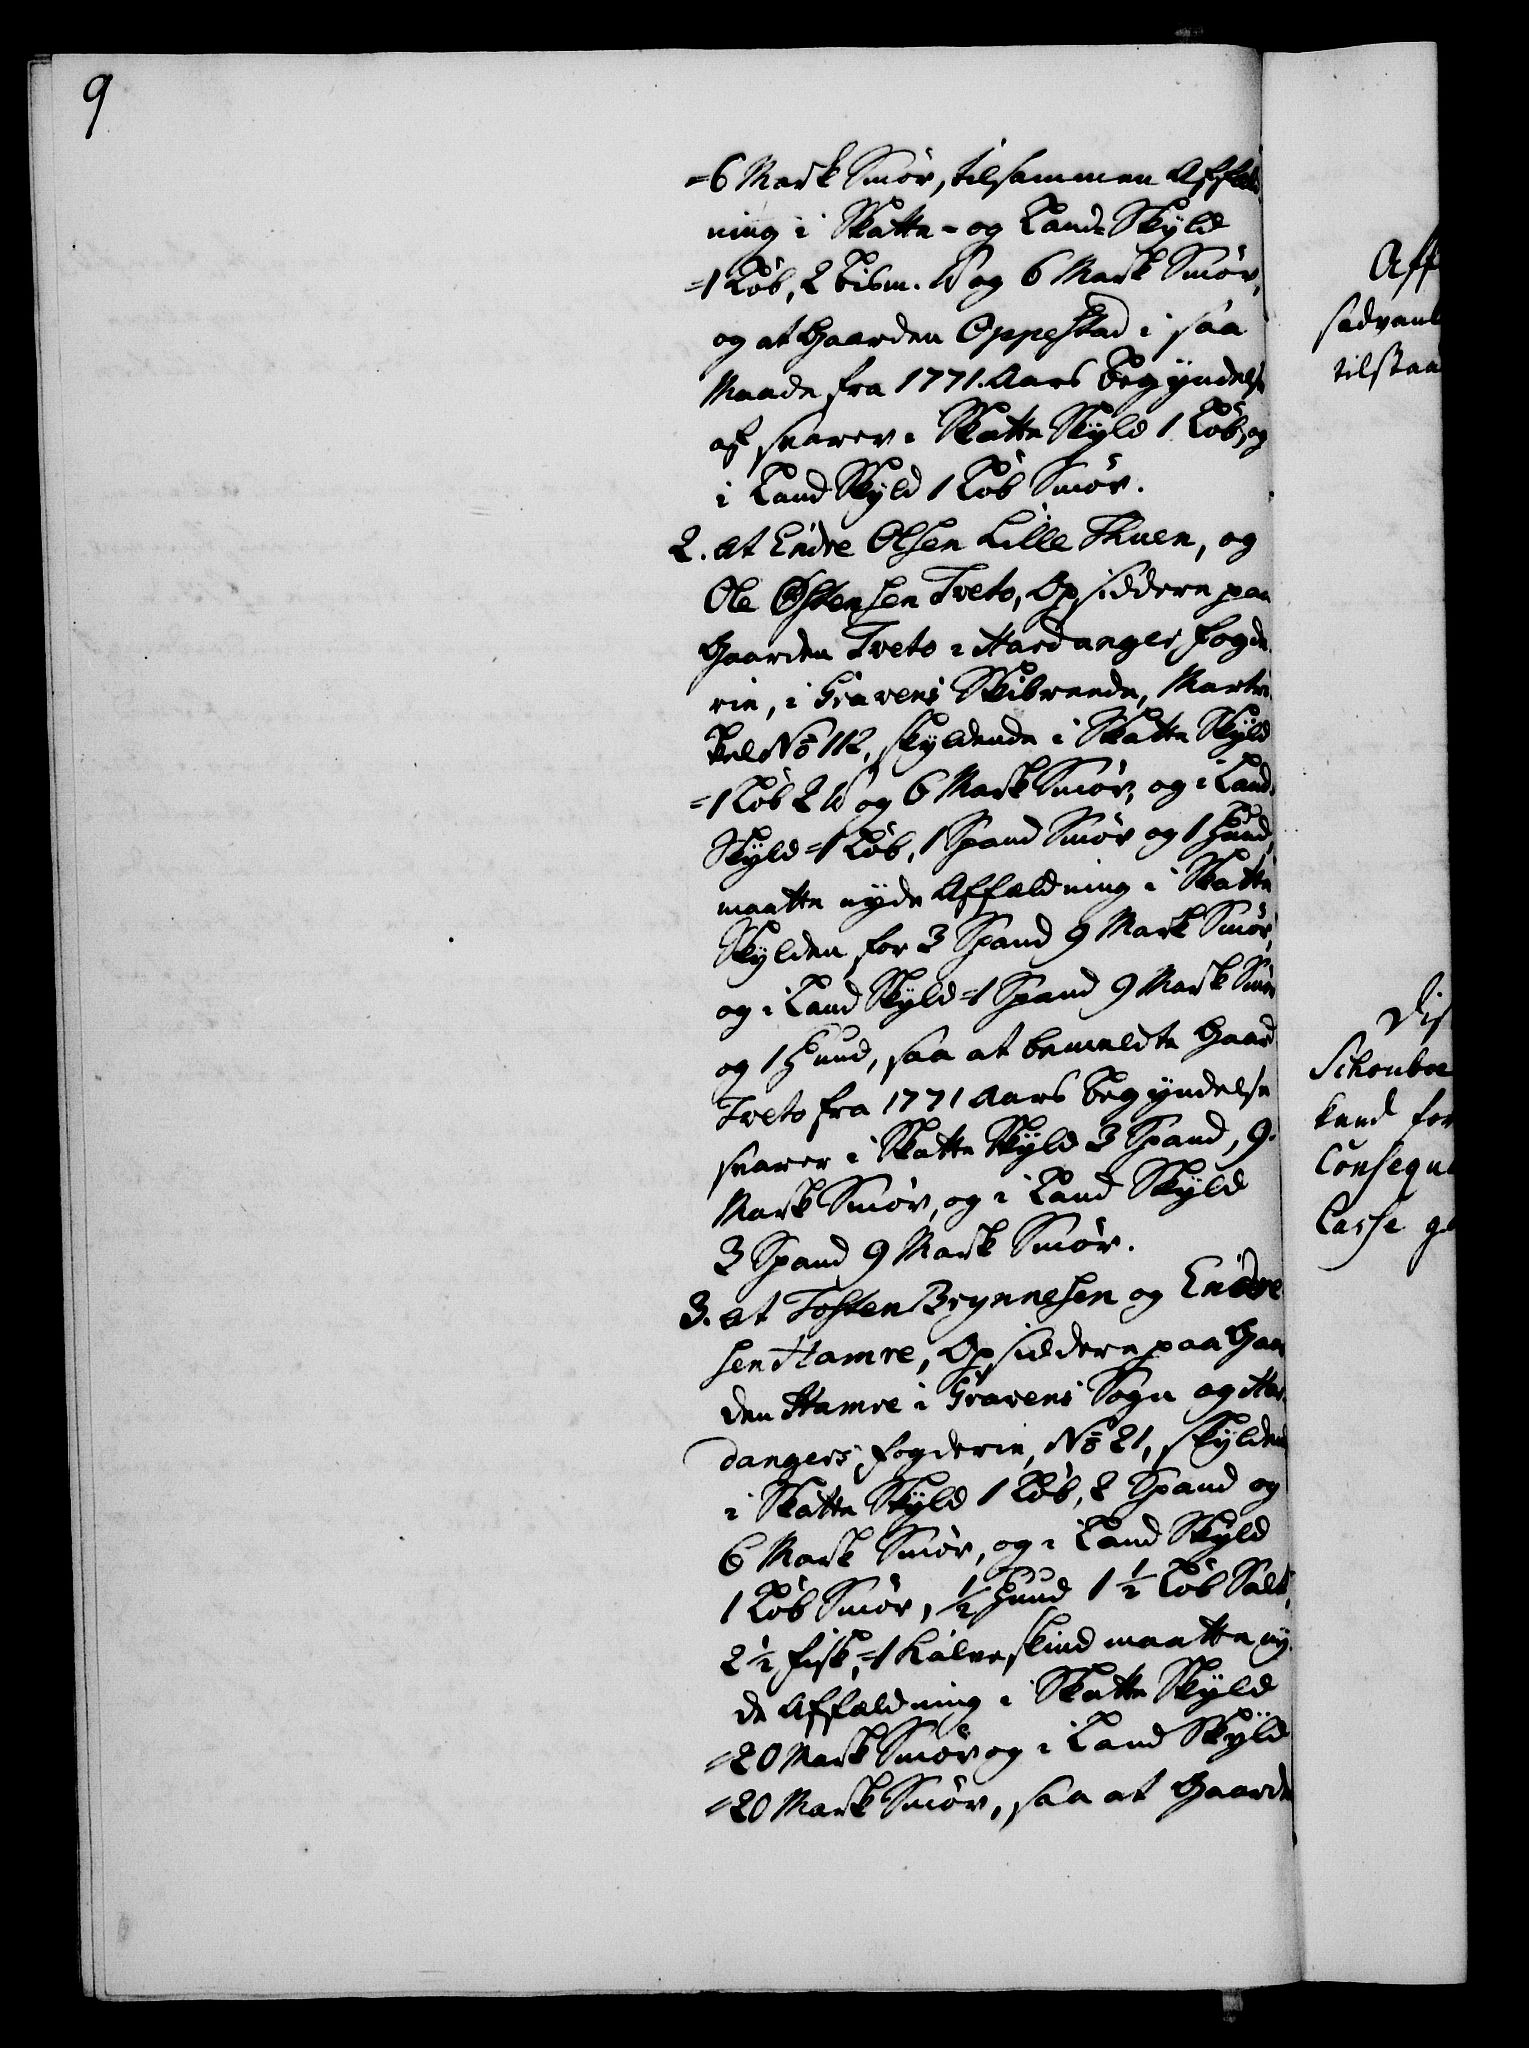 9
=6 Mark Smör, tilsammen Affæld-
ning i Skatte- og Land-Skyld
=1 Løb, 2 Bism. ℔ og 6 Mark Smör,
og at Gaarden Oppestad i saa
Maade fra 1771. Aars Begyndelse
af svarer i Skatte Skyld 1 Løb, og
i Land Skyld 1 Løb Smör.
2. at Endre Olsen Lille Thuen, og
Ole Østensen Tveto, Opsiddere paa
Gaarden Tveto i Hardanger Fogde-
rie, i Gravens Skibrende, Martri-
kel No 112, skyldende i Skatte Skyld
=1 Løb 2 ℔ og 6 Mark Smör, og i Land-
Skyld =1 Løb, 1 Spand Smör og 1 Huud,
maatte nyde Affældning i Skatte
Skylden for 3 Spand 9 Mark Smör,
og i Land Skyld =1 Spand 9 Mark Smör
og 1 Huud, saa at bemeldte Gaard
Tveto fra 1771 Aars Begyndelse
svarer i Skatte Skyld 3 Spand, 9.
Mark Smör, og i Land Skyld
3 Spand 9 Mark Smör.
3. at Tosten Brynnesen og Endre
sen Hamre, Opsiddere paa Gaar
den Hamre i Gravens Sogn og Har-
dangers Fogderie, No 21, skyldend
i Skatte Skyld 1 Løb, 2 Spand og
6 Mark Smör, og i Land Skyld
1 Løb Smör, ½ Huud 1 ½ Løb Salt,
2 ½ Fisk, =1 Kalveskind maatte ny-
de Affældning i Skatte Skyld
=20 Mark Smör og i Land Skyld
=20 Mark Smör, saa at Gaarde
Aff
sædvanl
tilstaa
Dis
Schouboe
kand for
Conseque
Casse ge